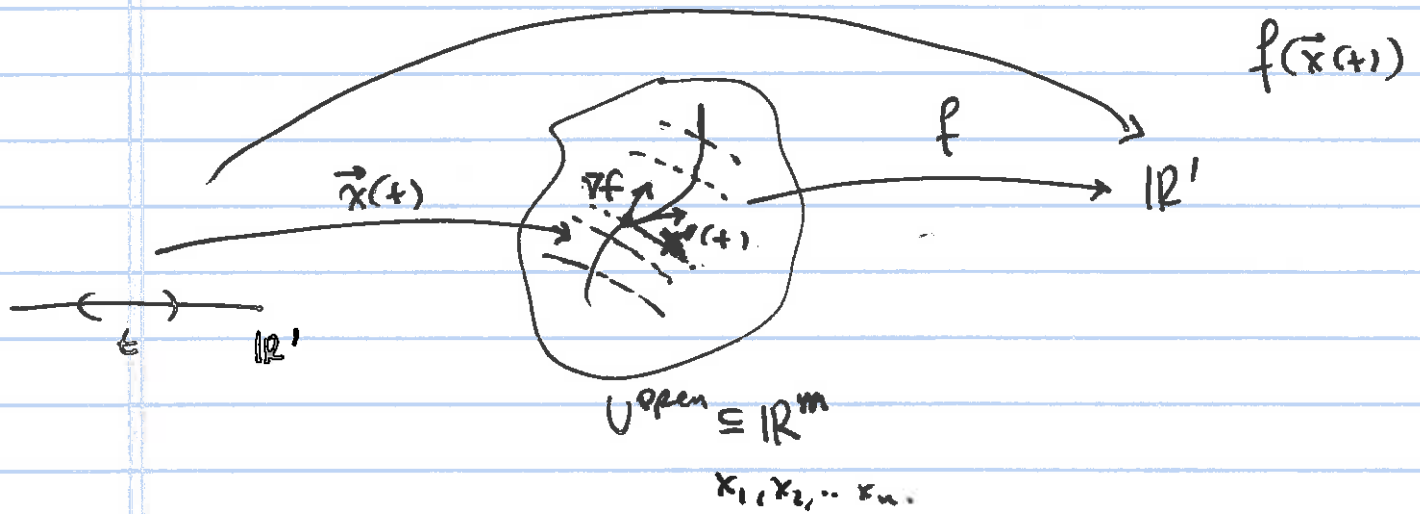 f(x⃗(t))
f
x⃗(t)
∇f
ℝ¹
x⃗'(t)
t
ℝ¹
U^open ⊆ ℝ^m
x₁, x₂, .. xₙ.